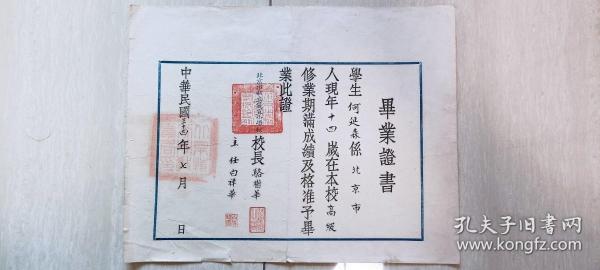 畢業證書
學生何延森係北京市
人現年十四歲在本校高級
修業期滿成績及格准予畢
業此證
校長駱樹華
主任白祥華
中華民國三十四年七月 日
孔夫子旧书网
www.kongfz.com